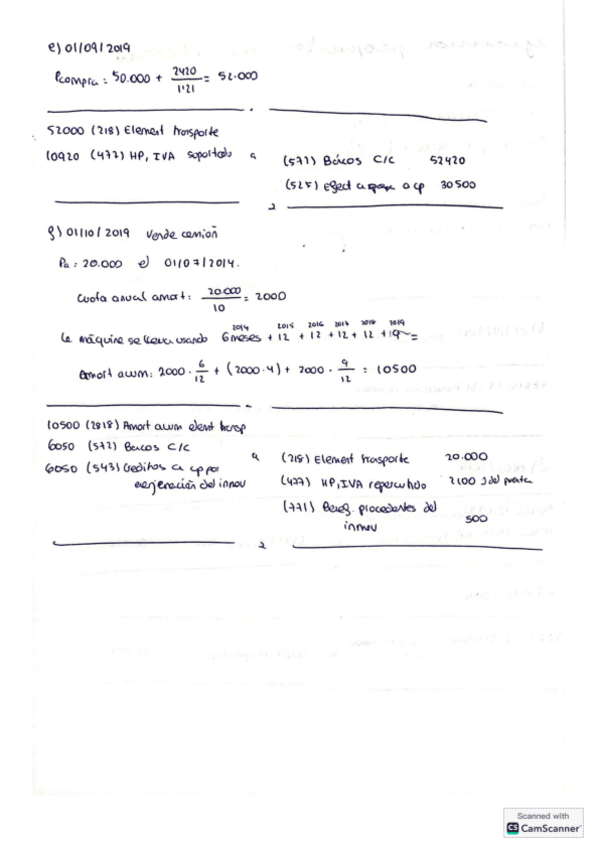 e) 01/09/2019
Pcompra = 50.000 + 2420/1'21 = 52.000
52000 (218) Element trasporte
10920 (477) HP, IVA soportado a (572) Bancos C/C 52420
(525) Efect a pagar a cp 30500
2
g) 01/10/2019 Vende camión
Pa = 20.000 el 01/07/2014.
Cuota anual amort: 20.000/10 = 2000
2014 2015 2016 2017 2018 2019
la máquina se lleva usando 6 meses + 12 + 12 + 12 + 12 + 9 =
Amort acum: 2000 · 6/12 + (2000·4) + 2000 · 9/12 = 10500
10500 (2818) Amort acum element transp
6050 (572) Bancos C/C
6050 (543) Creditos a cp por enajenación del inmov
a (218) Element trasporte 20.000
(477) HP, IVA repercutido 2100
(771) Benef. procedentes del inmov 500
2
Scanned with
CS CamScanner